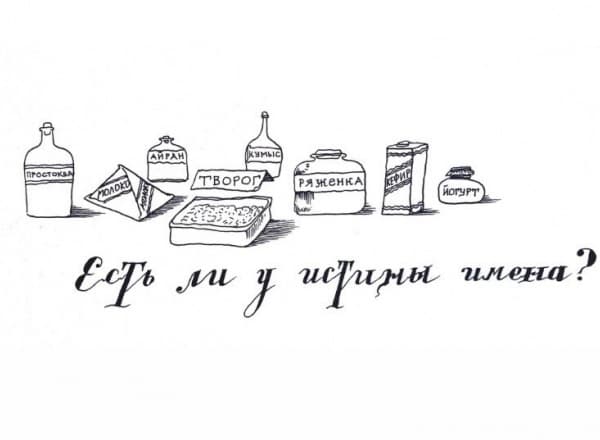 ПРОСТОКВА
МОЛОКО
МОЛОКО
АЙРАН
ТВОРОГ
КУМЫС
РЯЖЕНКА
КЕФИР
ЙОГУРТ
Есть ли у истины имена?